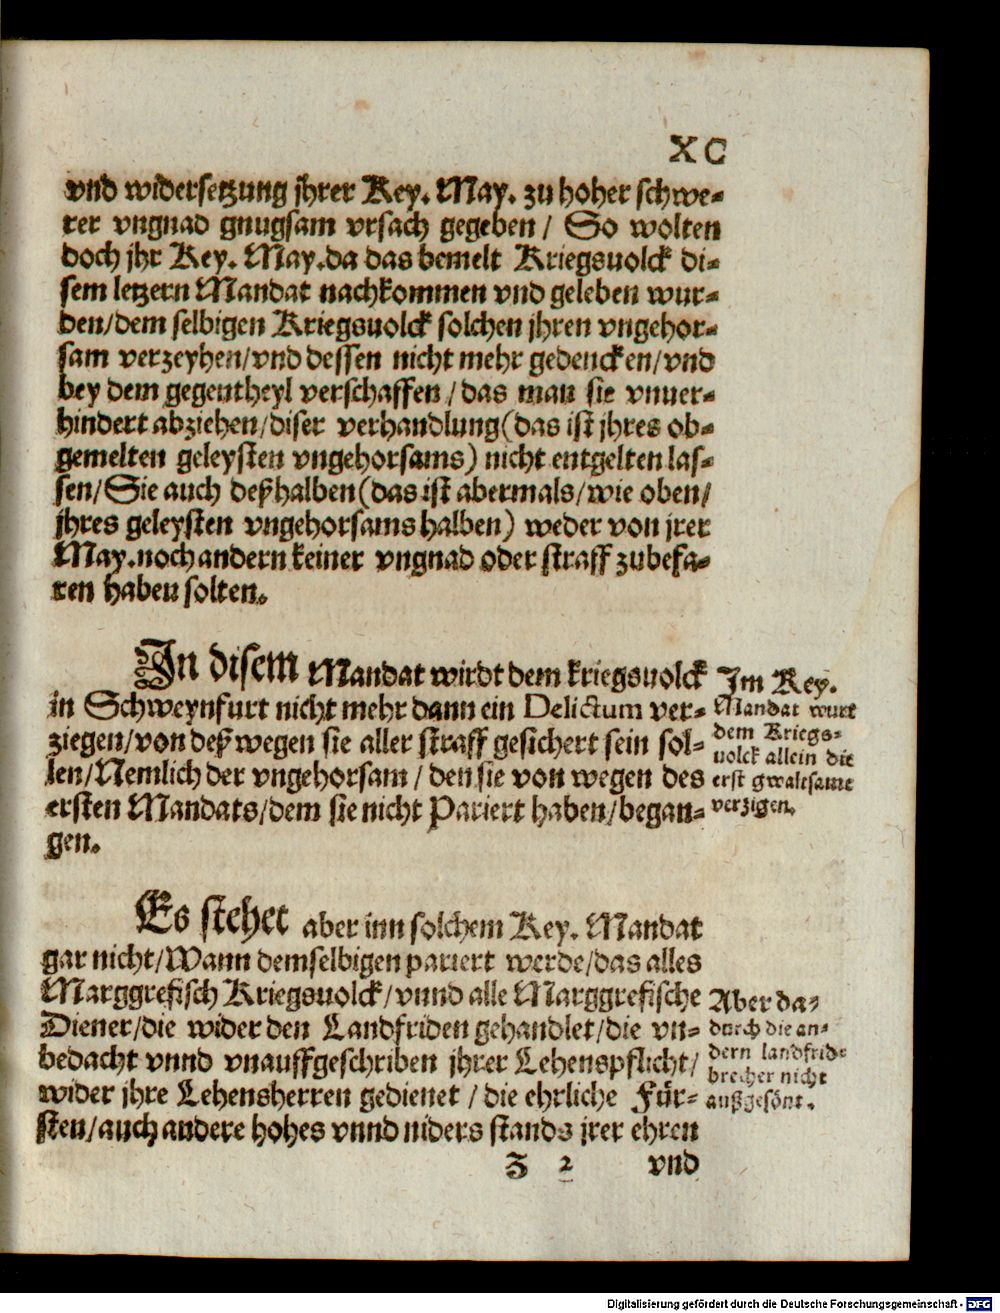 XC
vnd widersetzung jhrer Key. May. zu hoher schwe-
rer vngnad gnugsam vrsach gegeben / So wolten
doch jhr Key. May. da das bemelt Kriegsuolck di-
sem letzern Mandat nachkommen vnd geleben wur-
den/dem selbigen Kriegsuolck solchen jhren vngehor-
sam verzeyhen/vnd dessen nicht mehr gedencken/vnd
bey dem gegentheyl verschaffen / das man sie vnuer-
hindert abziehen/diser verhandlung (das ist jhres ob-
gemelten geleysten vngehorsams) nicht entgelten las-
sen/Sie auch deßhalben (das ist abermals/wie oben/
jhres geleysten vngehorsams halben) weder von jrer
May. noch andern keiner vngnad oder straff zubefa-
ren haben solten.
In disem Mandat wirdt dem kriegsuolck
in Schweynfurt nicht mehr dann ein Delictum ver-
ziegen/von deß wegen sie aller straff gesichert sein sol-
len/Nemlich der vngehorsam / den sie von wegen des
ersten Mandats/dem sie nicht Pariert haben/began-
gen.
Im Key.
Mandat wurt
dem Kriegs-
uolck allein die
erst gwaltsame
verzigen.
Es stehet aber inn solchem Key. Mandat
gar nicht/Wann demselbigen pariert werde/das alles
Marggrefisch Kriegsuolck/vnnd alle Marggrefische
Diener/die wider den Landfriden gehandlet/die vn-
bedacht vnnd vnauffgeschriben jhrer Lehenspflicht/
wider jhre Lehensherren gedienet / die ehrliche Für-
sten/auch andere hohes vnnd niders stands jrer ehren
Aber da-
durch die an-
dern landfrid-
brecher nicht
außgesönt.
Z 2 vnd
Digitalisierung gefördert durch die Deutsche Forschungsgemeinschaft - DFG